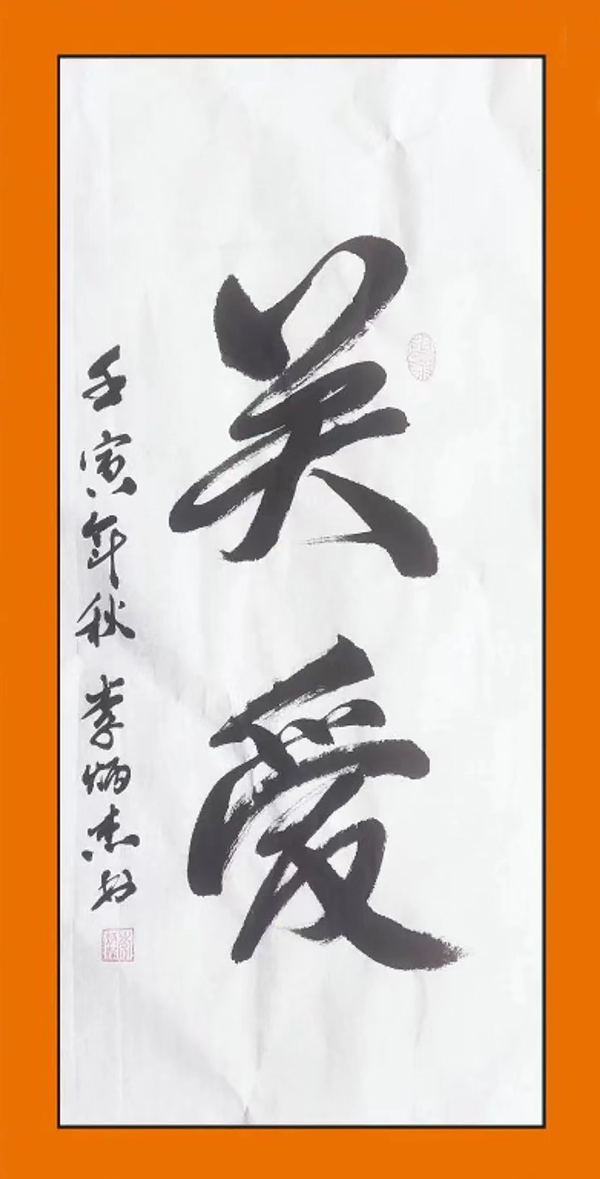 关爱
壬寅年秋 李炳杰书